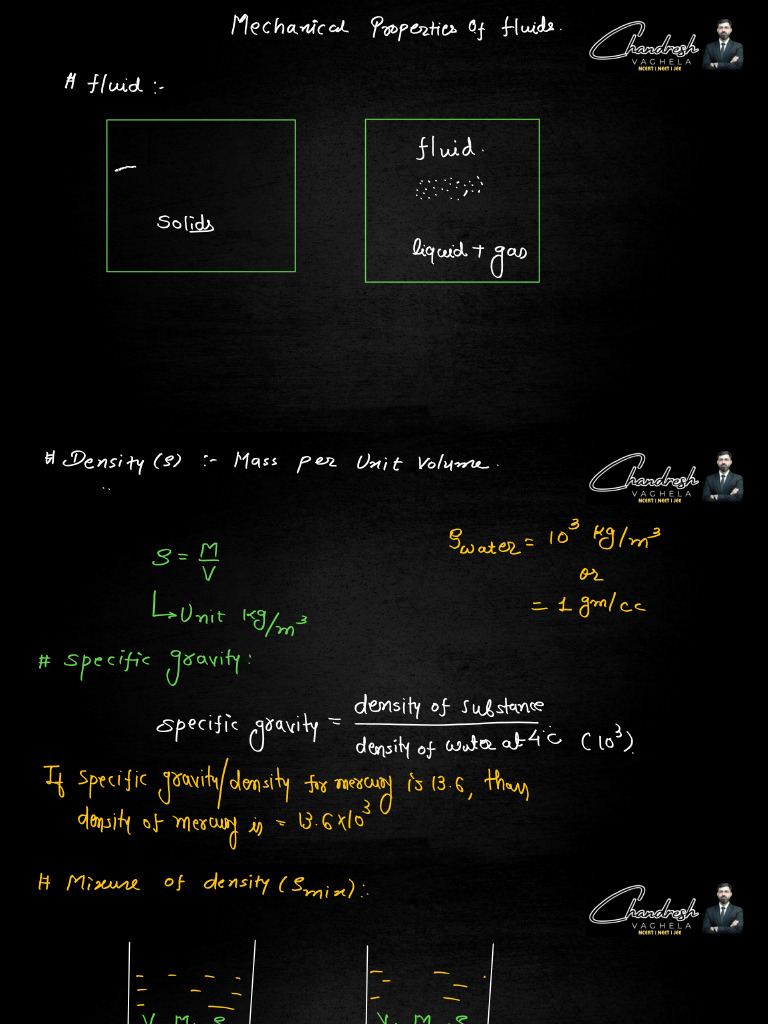 Mechanical Properties Of fluids.
Chandresh
VAGHELA
NCERT | NEET | JEE
# fluid :-
fluid.
Solids
liquid + gas
# Density (ρ) :- Mass per Unit Volume.
Chandresh
VAGHELA
NCERT | NEET | JEE
ρ = M/V
ρwater = 10³ kg/m³
or
= 1 gm/cc
↳ Unit kg/m³
# specific gravity:
specific gravity = density of substance / density of water at 4°C (10³).
If specific gravity/density for mercury is 13.6, than
density of mercury is = 13.6×10³
# Mixure of density (ρmix):-
Chandresh
VAGHELA
NCERT | NEET | JEE
V, M, ρ
V, M, ρ